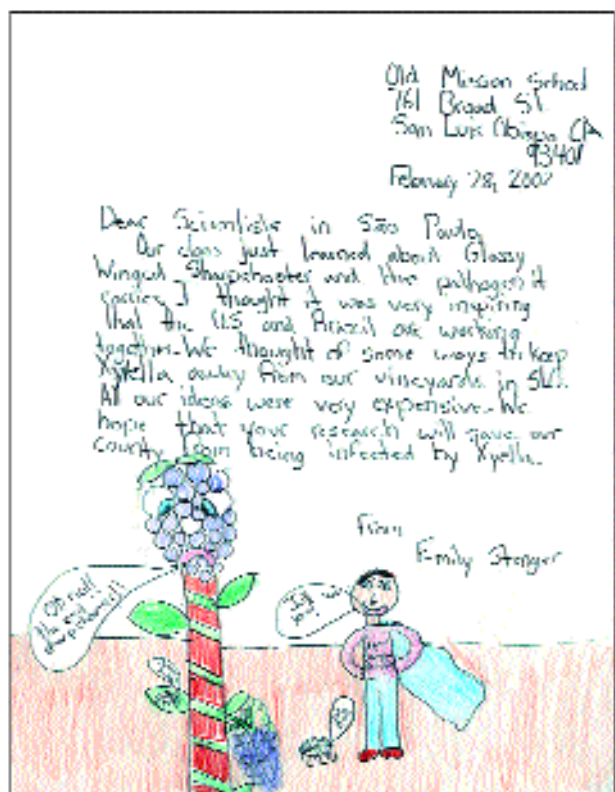 Old Mission School
761 Broad St.
San Luis Obispo CA
93401
February 28, 2002
Dear Scientists in São Paulo,
Our class just learned about Glassy
Winged Sharpshooter and the pathogen it
carries. I thought it was very inspiring
that the U.S and Brazil are working
together. We thought of some ways to keep
Xylella away from our vineyards in SLO.
All our ideas were very expensive. We
hope that your research will save our
county from being infected by Xyella.
From
Emily Stenger
Oh no!!